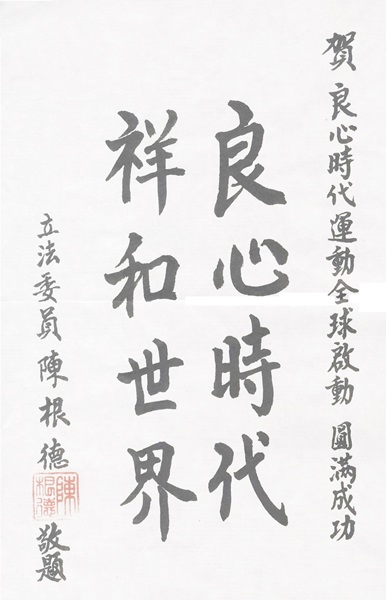 賀 良心時代運動全球啟動 圓滿成功
良心時代
祥和世界
立法委員陳根德
陳根德
敬題